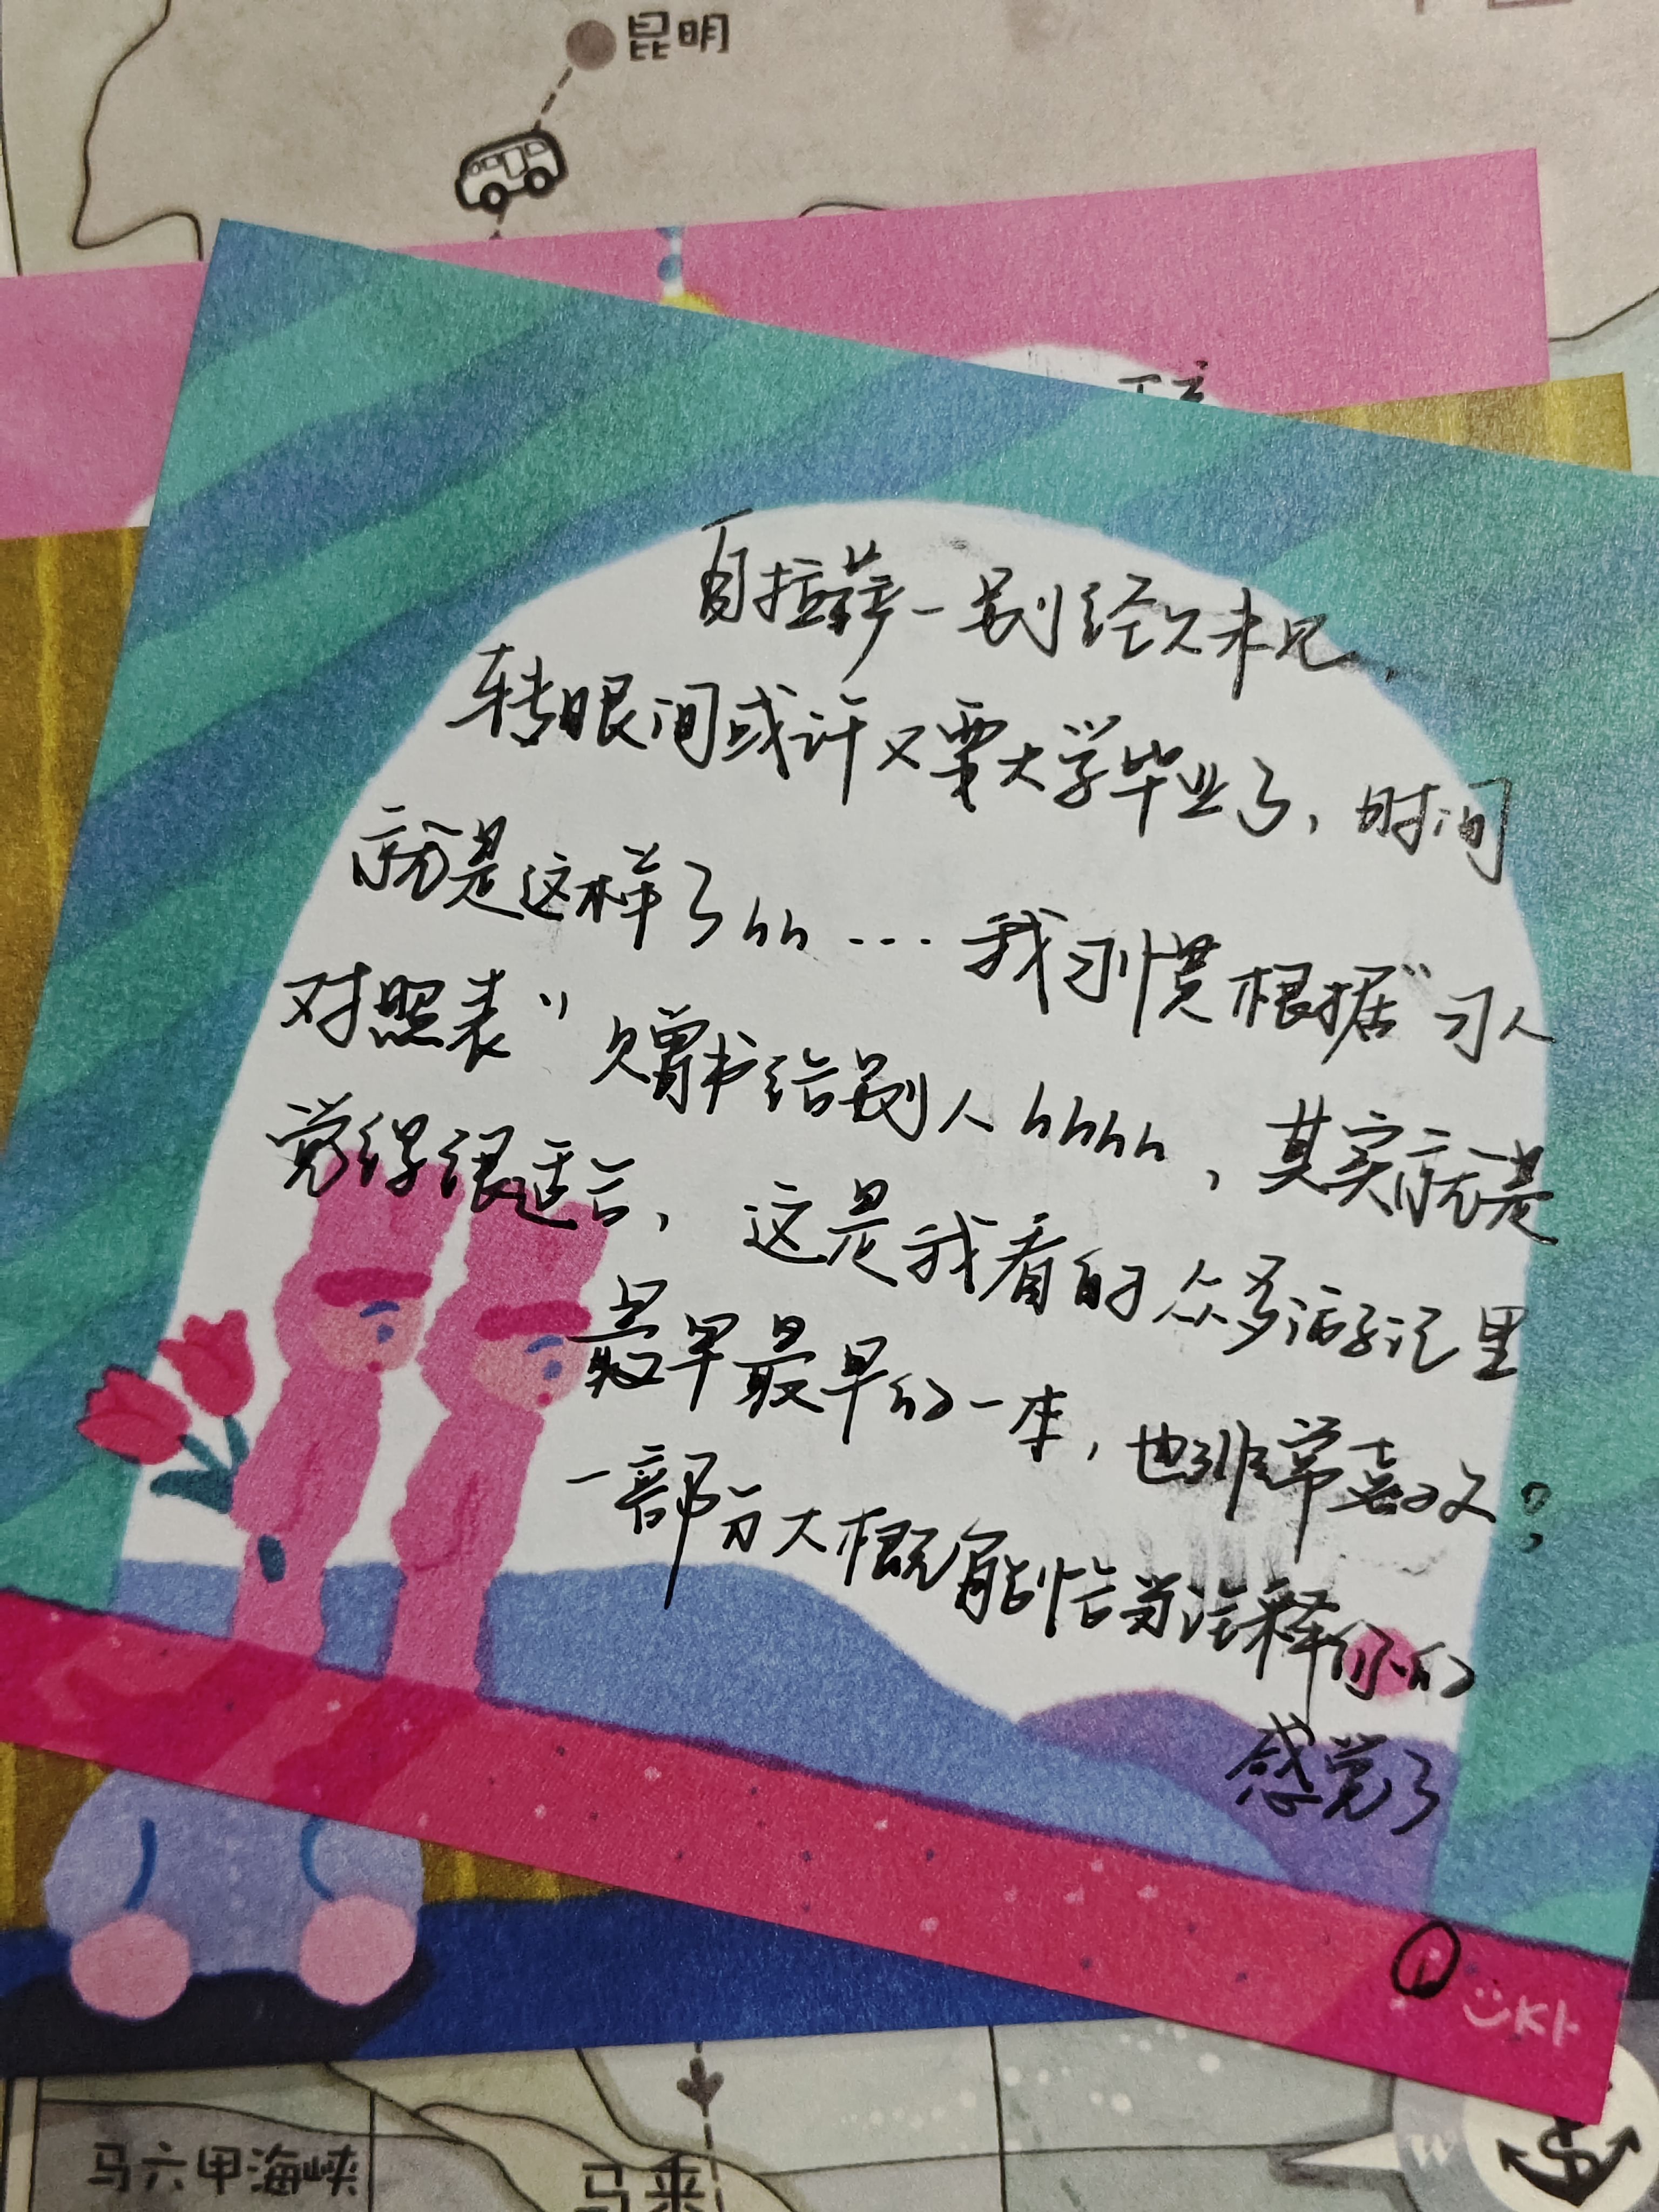 昆明
自拉萨一别经久未见,
转眼间或许又要大学毕业了,时间
就是这样了hh...我习惯根据“习人
对照表”赠书给别人hhhh,其实就是
觉得很适合,这是我看的众多游记里
最早最早的一本,也非常喜欢;
一部分大概能恰当注释你的
感觉了
①
KH
马六甲海峡
马来
W